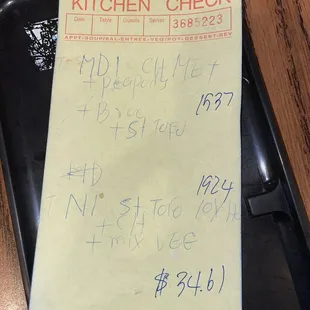 KITCHEN CHECK
Date Table Guests Server 3685223
APPT-SOUP/SAL-ENTREE-VEG/POT-DESSERT-BEV
MD1 CH MEt
+ peapods
+ Broc 1537
+ St Tofu
1924
N1 St Tofo
+ CH
+ mix VEE
$34.61